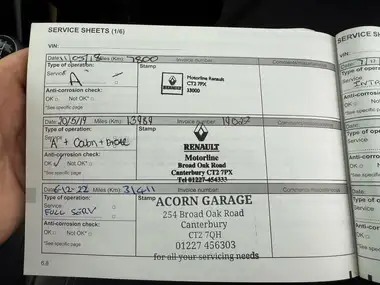 SERVICE SHEETS (1/6)
VIN:
Date: 11/05/18 Miles (Km): 7800 Invoice number Comments/Maintenance
Type of operation: Stamp
Service A
Motorline Renault
CT2 7PX
Anti-corrosion check:
OK □ Not OK* □
*See specific page
Date: 20/5/19 Miles (Km): 13989 Invoice number
Type of operation: Stamp
"A" + Cabin + Brake
RENAULT
Motorline
Broad Oak Road
Canterbury CT2 7PX
Tel 01227-454333
Anti-corrosion check:
OK Not OK* □
*See specific page
Date: 6-12-22 Miles (Km): 31611 Invoice number
Type of operation: Stamp
Service
FULL SERV
ACORN GARAGE
254 Broad Oak Road
Canterbury
CT2 7QH
01227 456303
for all your servicing needs
Anti-corrosion check:
OK □ Not OK* □
*See specific page
6.6
SERVICE SHE
VIN:
Date:
Type of
Service
Anti-cor
OK □
*See spec
Date:
Type of
Service
Anti-cor
OK □
*See spec
Date:
Type of
Service
Anti-cor
OK □
*See spec